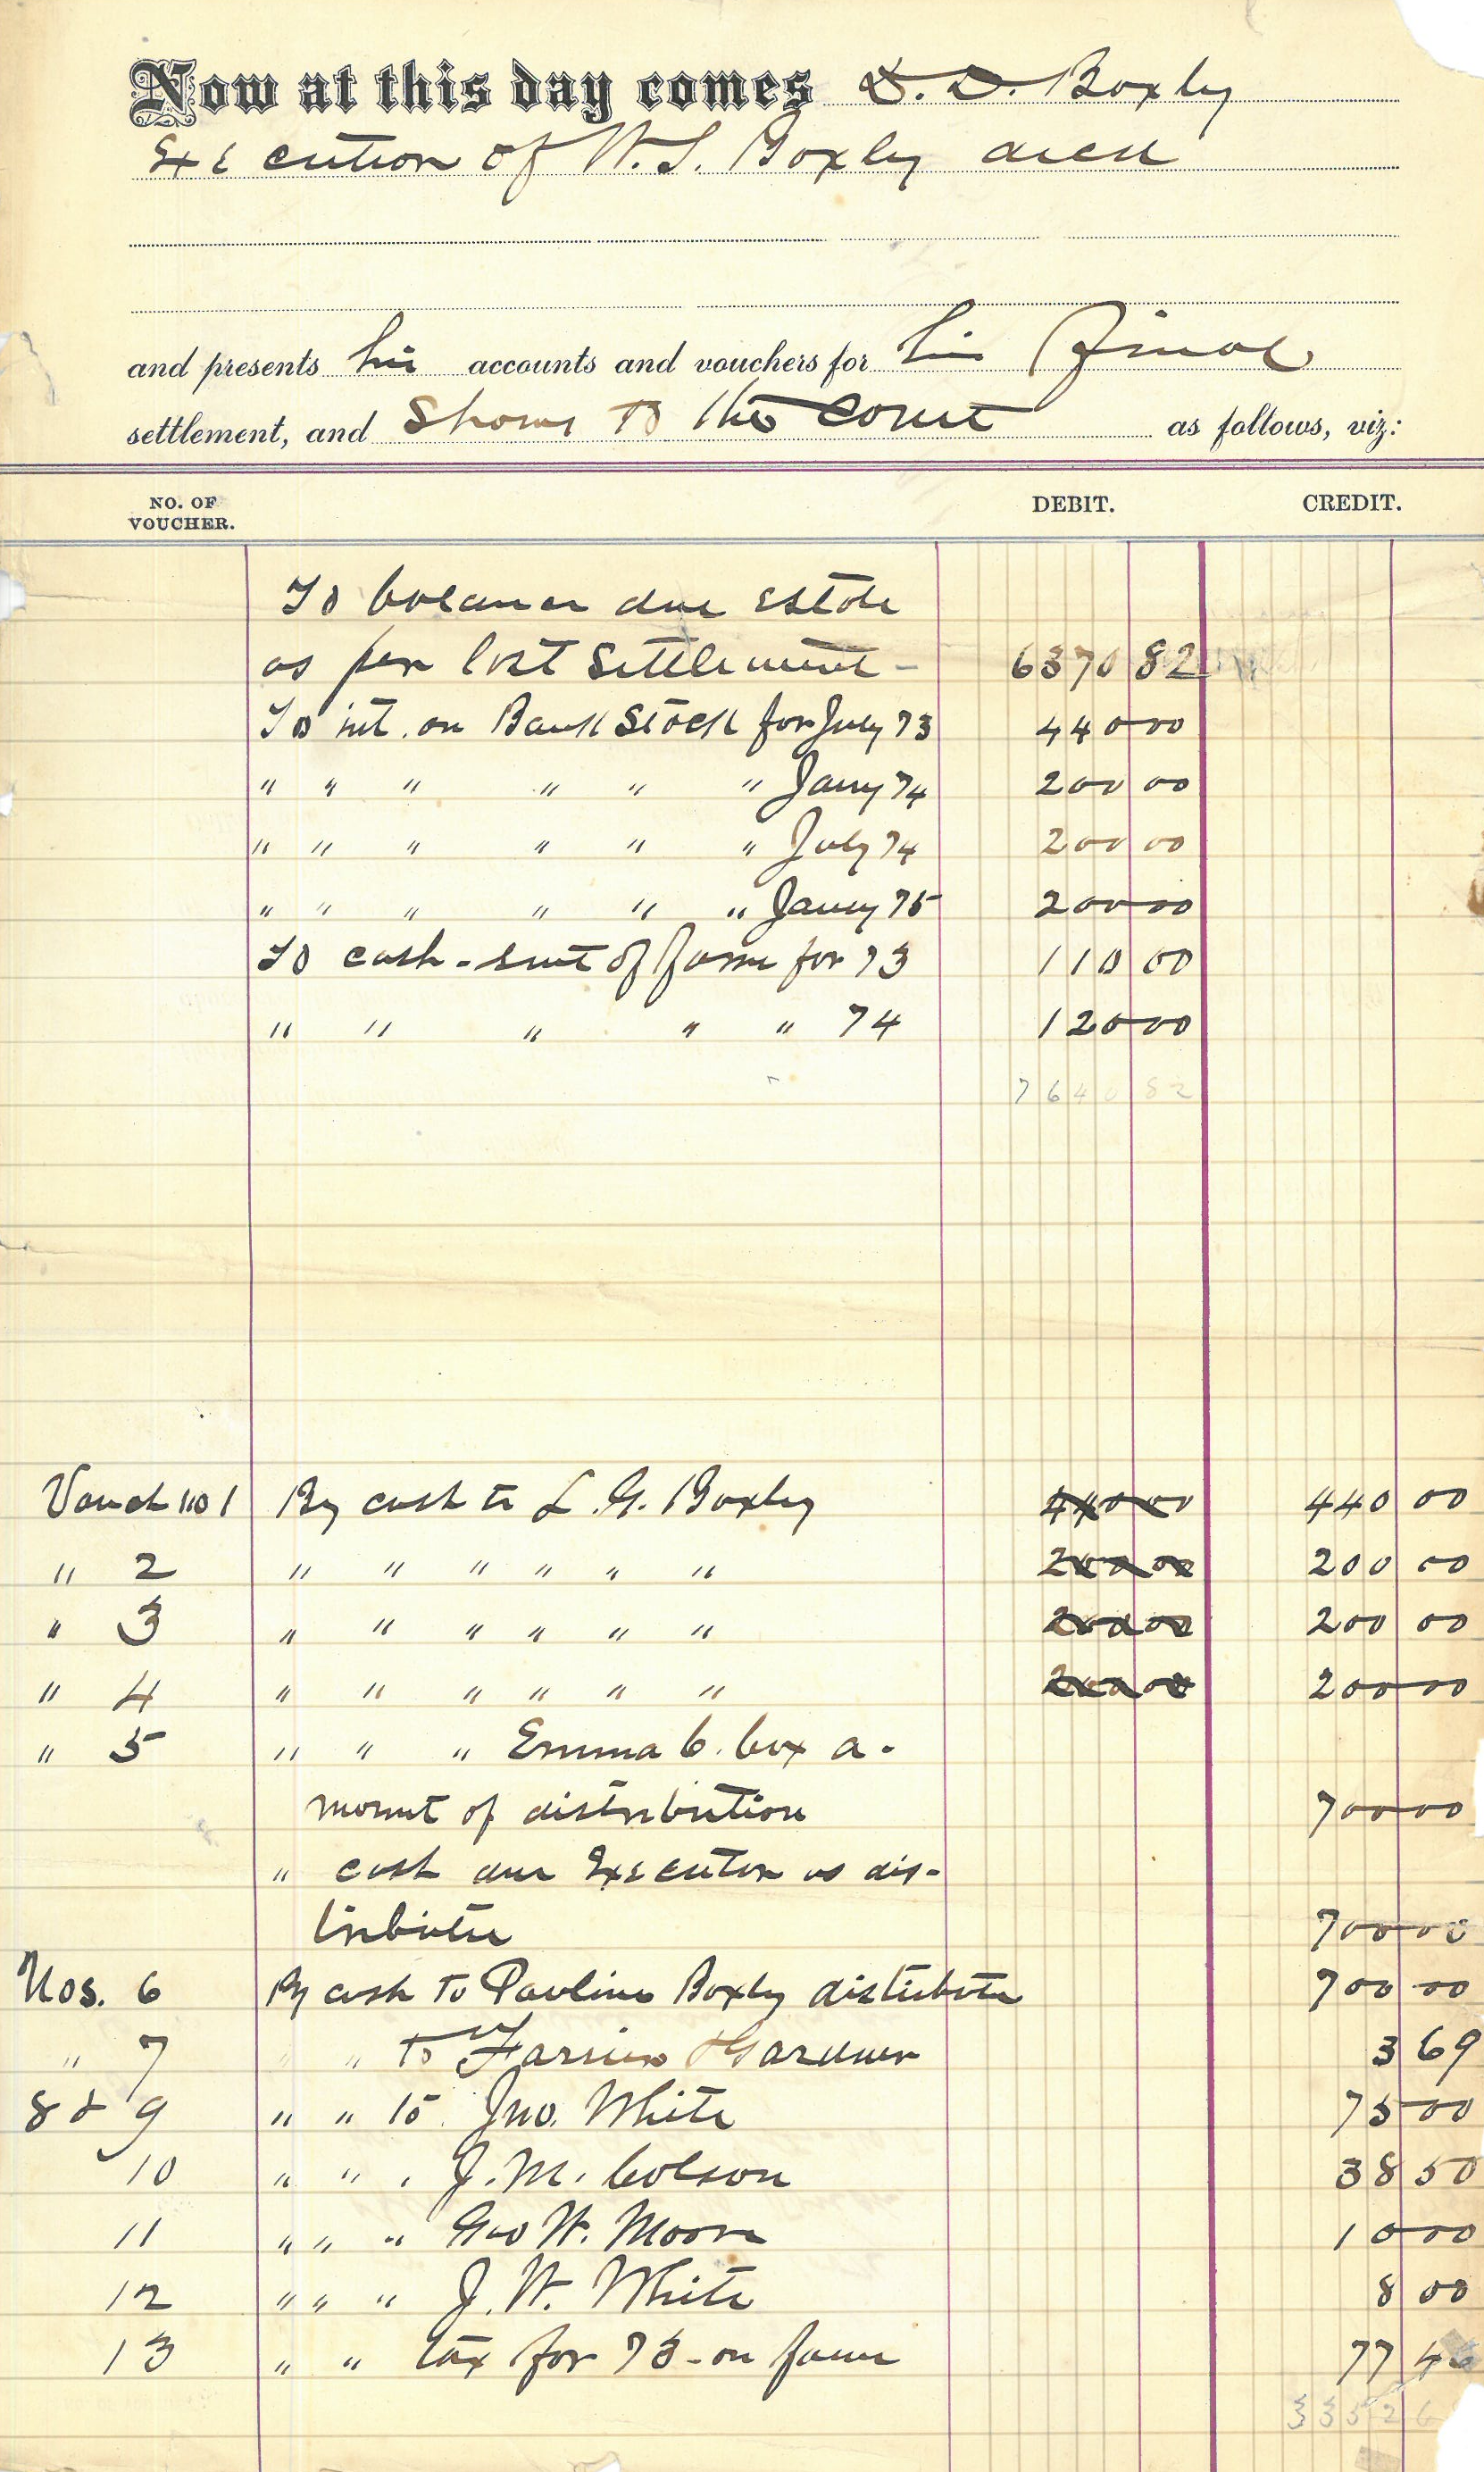 Now at this day comes D. D. Boxly
Execution of W. S. Boxly decd
and presents his accounts and vouchers for his Final
settlement, and Shows to the Court as follows, viz:
NO. OF VOUCHER. DEBIT. CREDIT.
To balance due Estate
as per last Settlement - 6370 82
To int. on Bank Stock for July 73 440 00
" " " " " " Jany 74 200 00
" " " " " " July 74 200 00
" " " " " " Jany 75 200 00
To cash - rent of farm for 73 110 00
" " " " " 74 120 00
7640 82
Vouch no 1 By cash to L. G. Boxley 440 00 440 00
" 2 " " " " " " 200 00 200 00
" 3 " " " " " " 200 00 200 00
" 4 " " " " " " 200 00 200 00
" 5 " " " Emma C. Cox a-
mount of distribution 700 00
" cash due Executor as dis-
tributee 700 00
Nos. 6 By cash to Pauline Boxly distributee 700 00
" 7 " " to Farrier & Gardner 3 69
8 & 9 " " to Jno. White 75 00
10 " " " J. M. Colson 38 50
11 " " " Geo W. Moore 10 00
12 " " " J. W. White 8 00
13 " " tax for 73 - on farm 77 4
3352 6